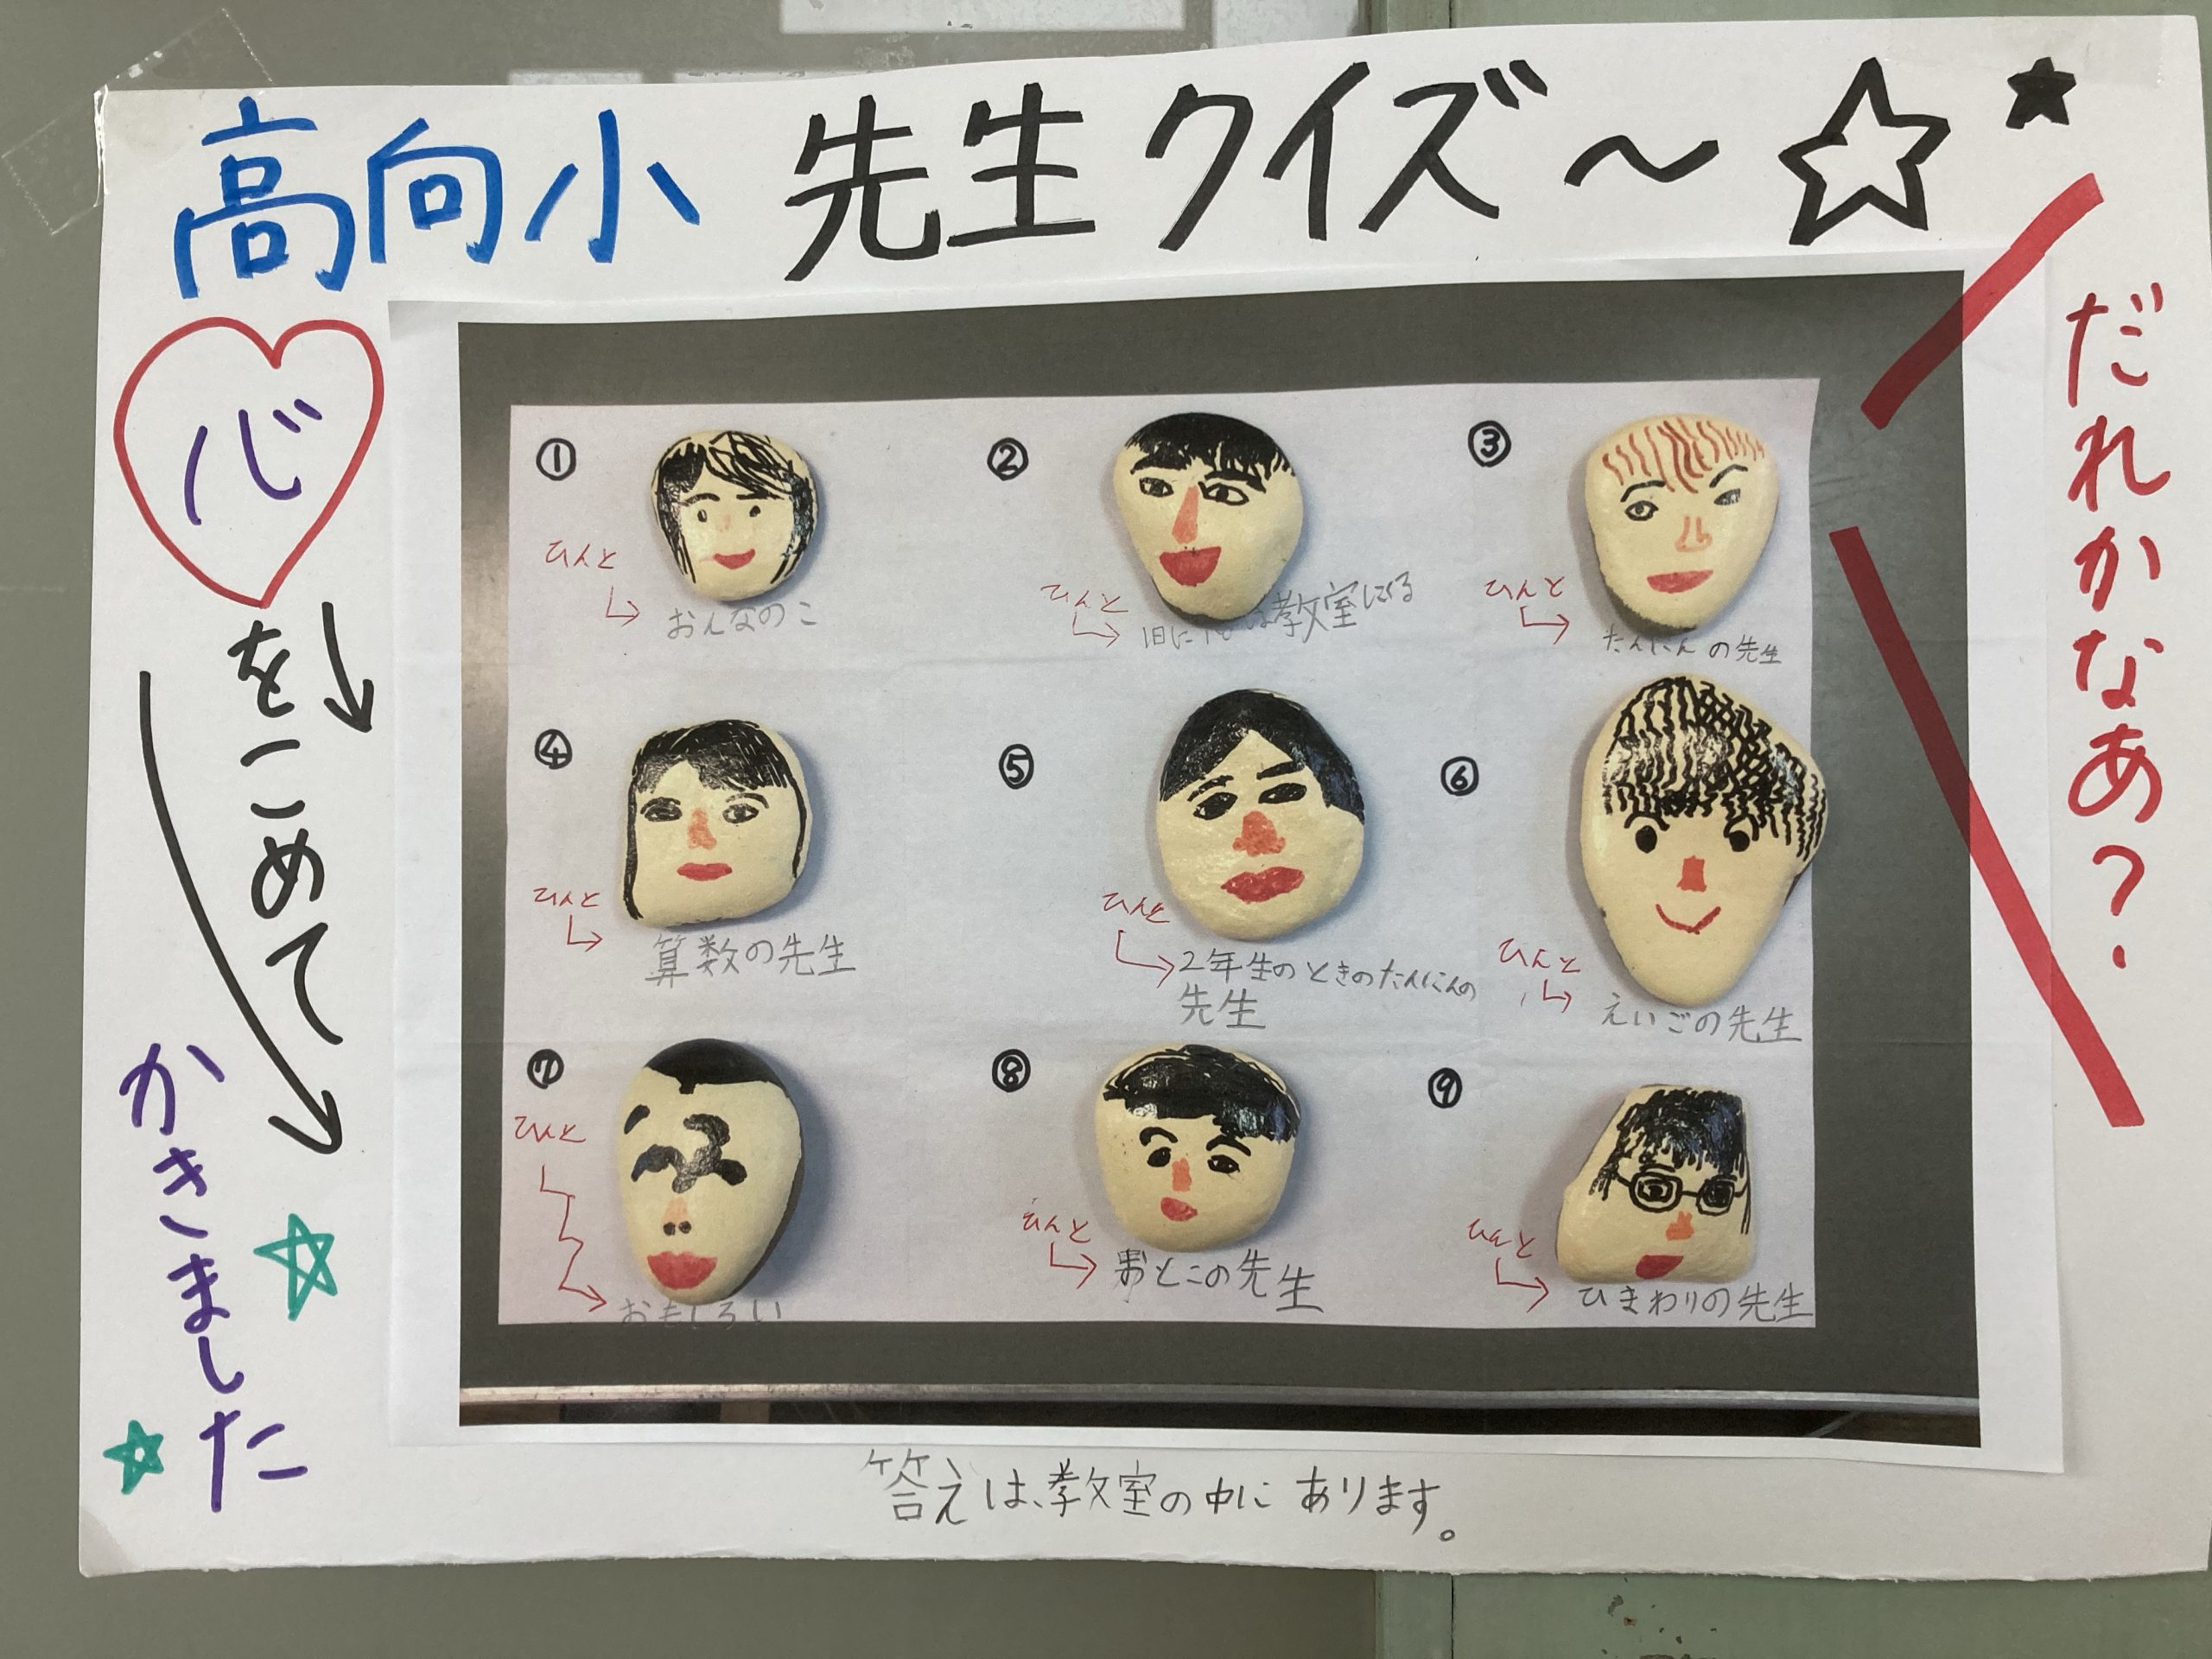 高向小 先生クイズ～☆★
だれかなあ?
心
をこめて
かきました
①
ひんと
おんなのこ
②
ひんと
1日に
は教室にる
③
ひんと
たんにんの先生
④
ひんと
算数の先生
⑤
ひんと
2年生のときのたんにんの
先生
⑥
ひんと
えいごの先生
⑦
ひんと
おもしろい
⑧
ひんと
おとこの先生
⑨
ひんと
ひまわりの先生
答えは、教室の中にあります。